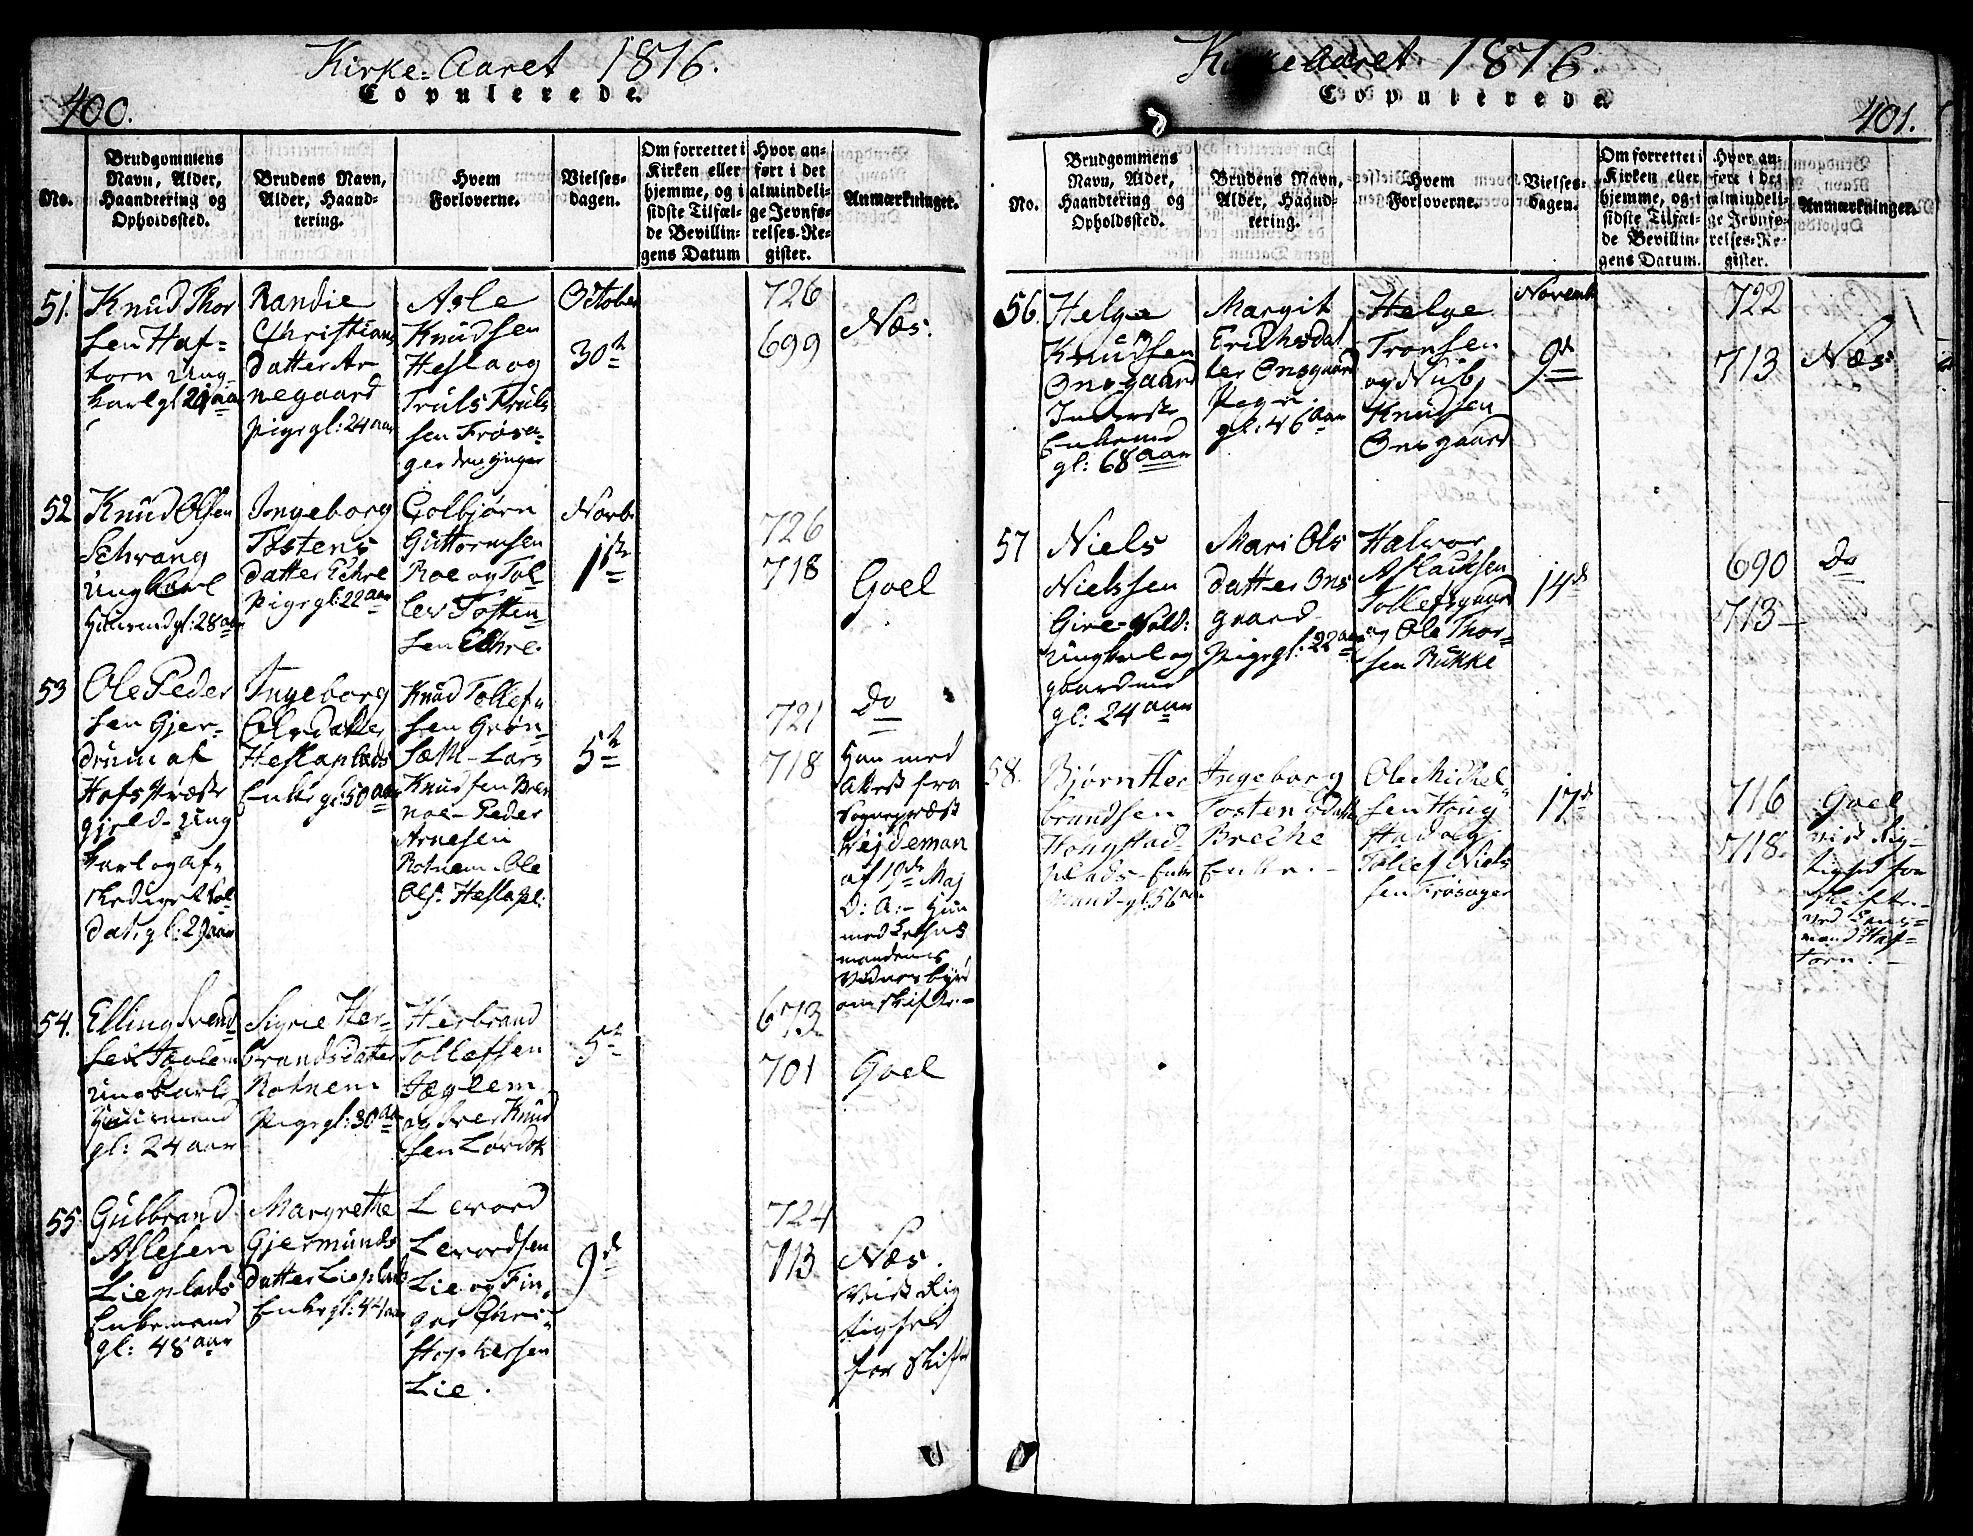 Kirke-Aaret 1816.
400.
Copulerede.
No.
Brudgommens
Navn, Alder,
Haandtering og
Opholdssted.
Brudens Navn,
Alder, Haand-
tering.
Hvem
Forloverne.
Vielses-
dagen.
Om forrettet i
Kirken eller
hjemme, og i
sidste Tilfæl-
de Bevillin-
gens Datum
Hvor an-
ført i det
almindeli-
ge Jevnfø-
relses-Re-
gister.
Anmærkninger.
51.
Knud Thor
sen Haf-
torn Ung-
karl gl
Randie
Christians
datter Ar
negaard
Pige gl: 24 aar
Asle
Knudsen
Hesla og
Truls Truls
sen Frøsa-
ger den yngre
October
30te
726
699
Næs.
52
Knud Olsen
Schrang
Ungkarl
Huusmd gl: 28 aar
Ingeborg
Tostens
datter Echre
Pige gl: 22 aar
Colbjørn
Guttormsen
Roe og Tol
lev Tosten-
sen Echre.
Novb.
1ste
726
718
Goel
53
Ole Peder
sen Gjer-
drum af
Hofs Præste
gjeld - Ung
karl og af-
skediget Sol
dat gl: 29 aar
Ingeborg
Olsdatter
Heslaplads
Enke gl: 50 aar
Knud Tollef-
sen Grøn-
Sæth - Lars
Knudsen Bren
noe - Peder
Arnesen
Rotnem. Ole
Ols: Heslapl:
5te
721
718
Do
Han med
Attest fra
Sognepræst
Vejdeman
af 19de Maj
D: A: - Hun
med Lehns
mandens
Vidnesbyrd
om Skifte. -
54.
Elling Svend
sen
Ungkarl
Huusmand
gl: 24 aar
Sigrie Her-
brandsdatter
Rotnem
Pige gl: 30 aar
Herbrand
Tollefsen
Hæglem
og Iver Knud
sen Lørdok
5te
673
701
Goel
55
Gulbrand
Aslesen
Lieplads
Enkemand
gl: 48 aar
Margrethe
Gjermunds
datter Lieplads
Enke gl: 44 aar
Levord
Levordsen
Lie og Fin
gar Chri-
stophersen
Lie.
9de
724
713
Næs.
Viist Rig
tighed
for Skifte
Kirke Aaret 1816.
401.
Copulerede.
No.
Brudgommens
Navn, Alder,
Haandtering og
Opholdssted.
Brudens Navn,
Alder, Haand-
tering.
Hvem
Forloverne.
Vielses-
dagen.
Om forrettet i
Kirken eller
hjemme, og i
sidste Tilfæl-
de Bevillin-
gens Datum.
Hvor an-
ført i det
almindeli-
ge Jevnfø-
relses-Re-
gister.
Anmærkninger.
56.
Helge
Knudsen
Onsgaard
Inderste
Enkemd
gl: 68 aar
Margit
Erichsdat
ter Onsgaard
Pige.
gl: 46 aar
Helge
Tronsen
og Nub
Knudsen
Onsgaard
Novemb
9de
722
713
Næs
57
Niels
Nielssen
Gire
Ungkarl og
gaardmd
gl: 24 aar
Mari Ols
datter Ons
gaard
Pige gl: 22 aar
Halvor
Aslacksen
Tollefsgaard
og Ole Thor-
sen Rukke
14de
690
713 -
Do
58.
Bjørn Her
brandsen
Hougstad-
plads - Enke
mand - gl: 56 aar
Ingeborg
Tostensdatter
Breche
Enke. -
Ole Michel-
sen Houg
stad og
Tollef Niels
sen Frøsager
17de
716
718.
Goel
viist Rig-
tighed for
Skifte -
ved Lens-
mand Haf-
torn. -